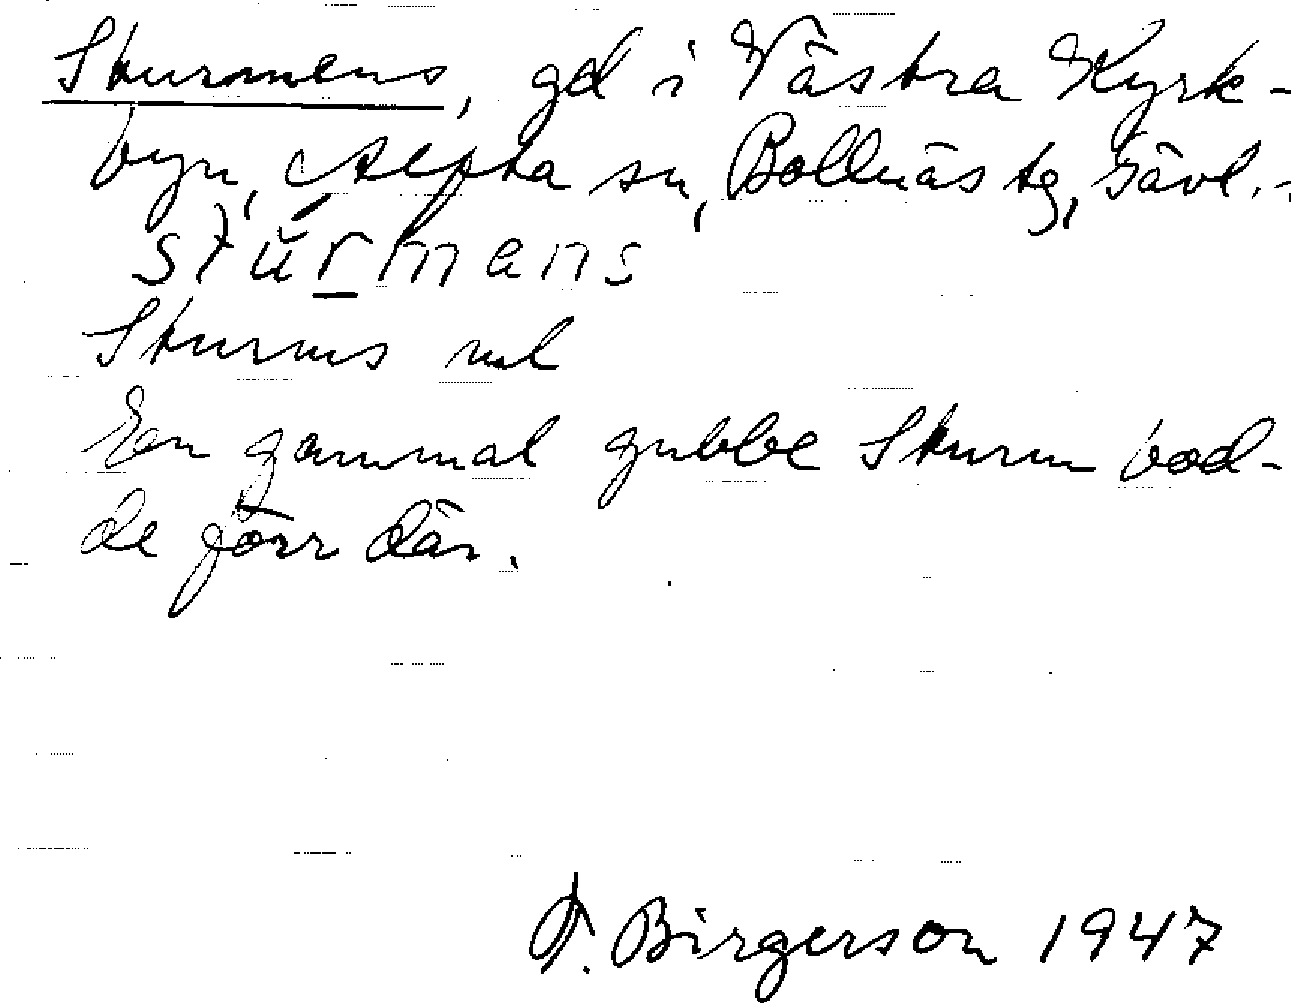 Sturmens, gd i Västra Kyrk-
byn, Alfta sn, Bollnäs tg, Gävl.-
stúrmans
Sturms ml
En gammal gubbe Sturm bod-
de förr där.
F. Birgerson 1947